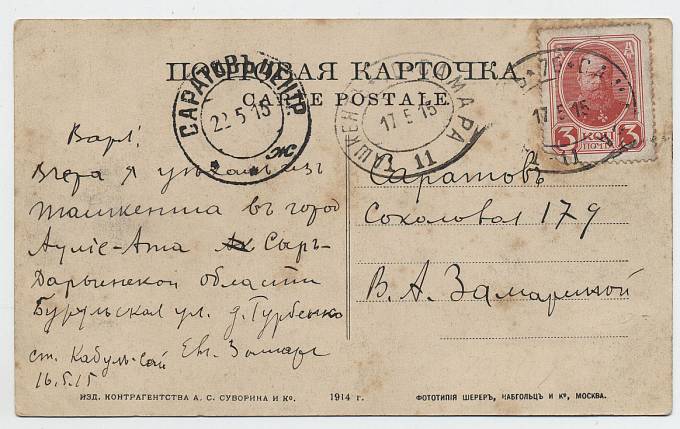 ПОЧТОВАЯ КАРТОЧКА
CARTE POSTALE
САРАТОВЪ ЦЕНТР.
22-5-15
Ж
ТАШКЕН САМАРА
17 5 15
11
17 5 15
11
3 КОП 3
ПОЧТА
Варя!
Вчера я уѣхалъ из
Ташкента въ город
Ауліе-Ата Сыръ-
Дарьинской области
ул. д.
ст. Кабулъ-Сай Евг.
16.5.15
Саратовъ
Соколовая 179
В. А. Замариной
ИЗД. КОНТРАГЕНТСТВА А. С. СУВОРИНА И Ко. 1914 г. ФОТОТИПІЯ ШЕРЕРЪ, НАБГОЛЬЦЪ И Ко, МОСКВА.